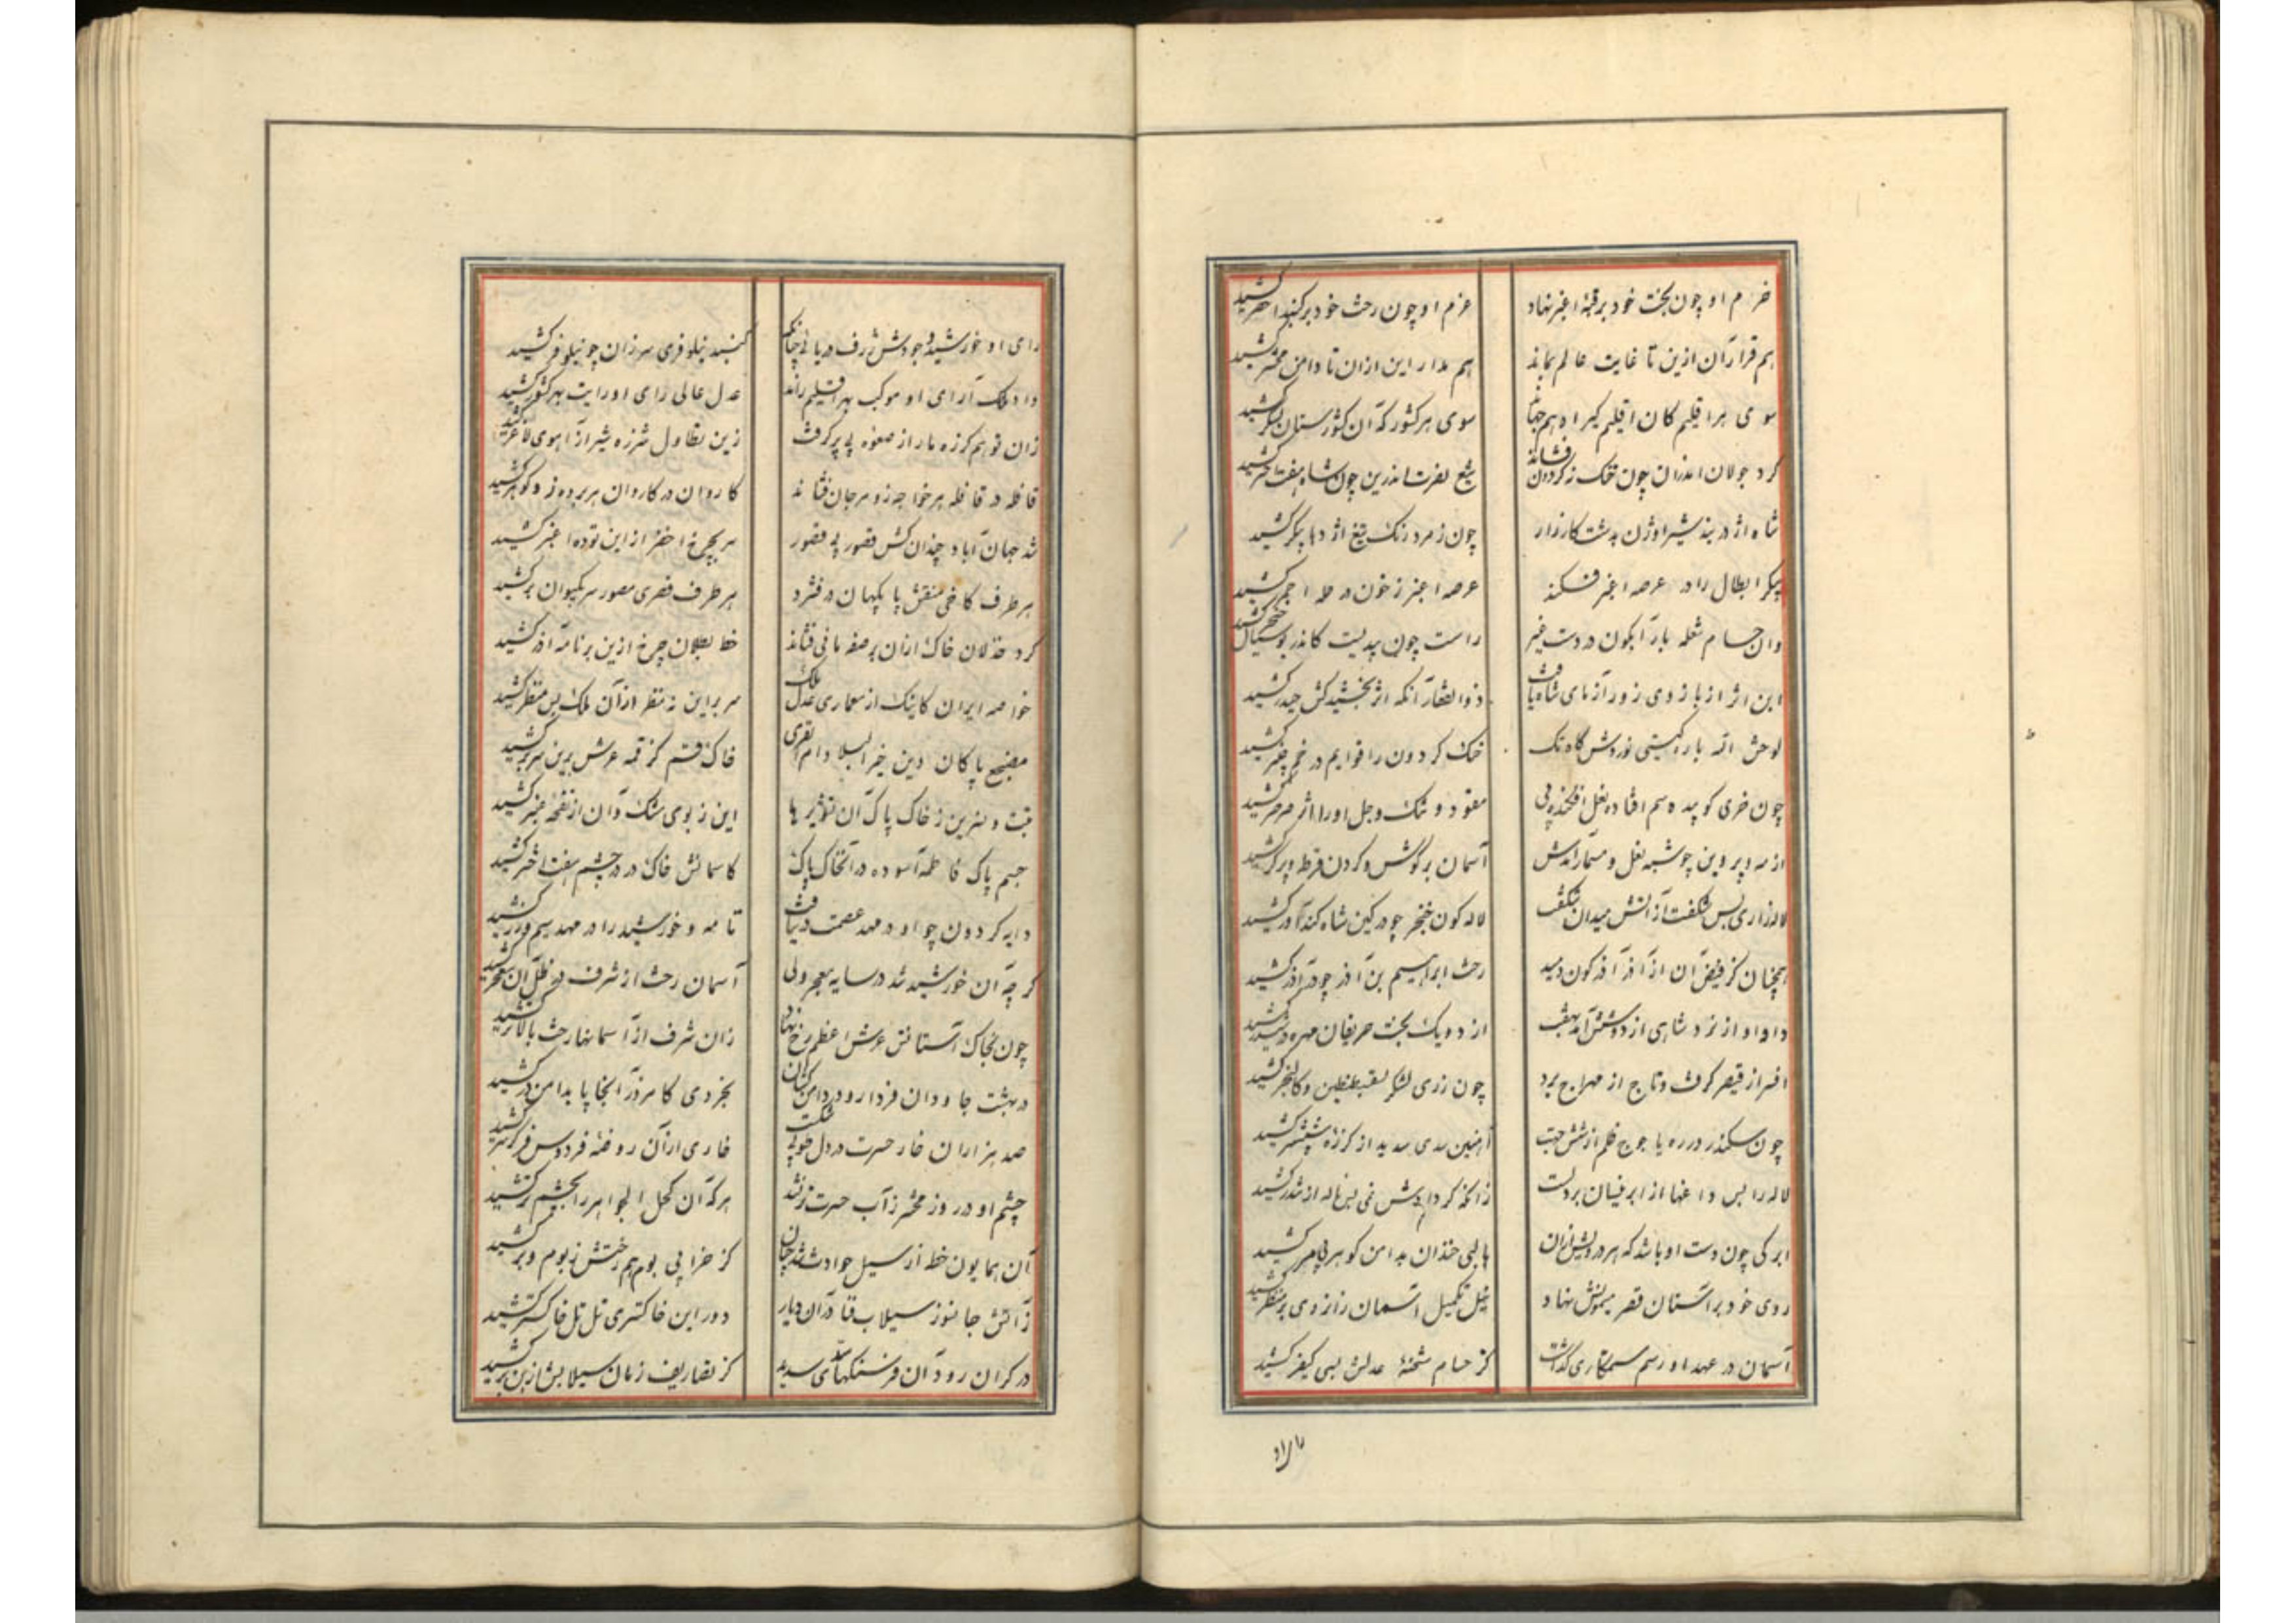 خرم او چون بخت خود بر قبهٔ اغبر نهاد
عزم او چون رخت خود بر گنبد اخضر کشید
هم قرار آن ازین تا غایت عالم بماند
هم مدار این ازان تا دامن محشر کشید
سوی هر اقلیم کان اقلیم گیر
سوی هر کشور که آن کشورستان لشکر کشید
گرد جولان اندران چون خنک زگردان فشاند
تیغ نصرت اندرین چون شاه هفت کشید
شاه اژدر بند شیر اوژن بدشت کارزار
چون زمرد رنگ تیغ اژدها پیکر کشید
پیکر ابطال را در عرصه اغبر فکند
عرصه اغبر ز خون در حله احمر کشید
وان حسام شعله بار آبگون در دست
راست چون کاندر خنجر کشید
این اثر از بازوی زور آزمای شاه یافت
ذوالفقار آنکه اثر بخشید کش حیدر کشید
لوحش الله باره گیتی نوردش گاه تک
خنک گردون را قوایم در خم کشید
چون خری کو
کشید
از مه و پروین چو شبه نعل و مسمار آمدش
آسمان بر گوش و گردن قرط و پرگر کشید
لاله زاری بس شگفت از آتش میدان شگفت
لاله گون خنجر چو در کین شاه کند آور کشید
همچنان کز فیض آن از آذر آذرگون دمید
رخت ابراهیم بن آذر چو در آذر کشید
داو او از نرد شاهی از دو شش آمد بهفت
از دو یک بخت حریفان مهره در ششدر کشید
افسر از قیصر گرفت و تاج از مهراج برد
چون ز ری لشکر بقسطنطین و کالنجر کشید
چون سکندر در ره یاجوج ظلم از شش جهت
آهنین سدی سدید از گرزه ششپر کشید
لاله را بس داغها از ابر نیسان بر دلست
زانکه گر دادش نمی بس ناله از تندر کشید
ابر کی چون دست او باشد که هر درویش ازان
با لبی خندان بدامن گوهر بی مر کشید
روی خود بر آستان قصر میمونش نهاد
خیل تکمیل آسمان را زاری بر منظر کشید
آسمان در عهد او رسم ستمکاری گذاشت
کز حسام شحنهٔ عدلش بسی کیفر کشید
رای او خورشید و جودش ژرف دریائی چنانکه
گنبد نیلوفری سر زان چو نیلوفر کشید
داد ملک آرای او موکب بهر اقلیم راند
عدل عالی رای او رایت بهر کشور کشید
زان توهم گرزه مار از صعوه پی گرفت
زین تطاول شرزه شیر از آهوی لاغر کشید
قافله در قافله هر خواجه زو مرجان فشاند
کاروان در کاروان هر برده زو گوهر کشید
شد جهان آباد چندان کش قصور بی قصور
سر بچرخ اخضر از این توده اغبر کشید
هر طرف کاخی منقش پا بکیهان در فشرد
هر طرف قصری مصور سر بکیوان بر کشید
کرد خذلان خاک ازان بر صفه مانی فشاند
خط بطلان چرخ ازین بر نامه آذر کشید
خواصه ایران کاینک از معماری عدل ملک
سر بر این نه منظر از آن ملک بس منظر کشید
مضجع پاکان دین خیر البلا دام القری
خاک قم کز قمه عرش برین سر بر کشید
تبت و نسرین ز خاک پاک آن
این ز بوی مشک و آن از نفحه عنبر کشید
جسم پاک فاطمه آسوده در آنخاک پاک
کاسمانش خاک در در چشم هفت اختر کشید
دایه گردون چو او در مهد عصمت در نیافت
تا مه و خورشید را در مهد سیم و زر کشید
گر چه آن خورشید شد در سایه معجر ولی
آسمان رخت از شرف در ظل آن معجر کشید
چون بخاک آستانش عرش اعظم رخ نهاد
زان شرف از آسمانها رخت بالاتر کشید
در بهشت جاودان فردا رود دامن کشان
بخردی کامروز اینجا پا بدامن در کشید
صد هزاران خار حسرت در دل طوبی شکست
خاری از آن روضهٔ فردوس فر گر سر کشید
چشم او در روز محشر ز آب حسرت تر نشد
هر که آن کحل الجواهر را بچشم تر کشید
آن همایون خط از سیل حوادث شد چنان
کز خرابی بوم هم رختش ز بوم و بر کشید
ز آتش جانسوز سیلاب فنا در آن دیار
دور این خاکستری تل تل خاکستر کشید
در کران رود آن فرسنگها سدی سدید
کز تصاریف زمان سیلابش از بن بر کشید